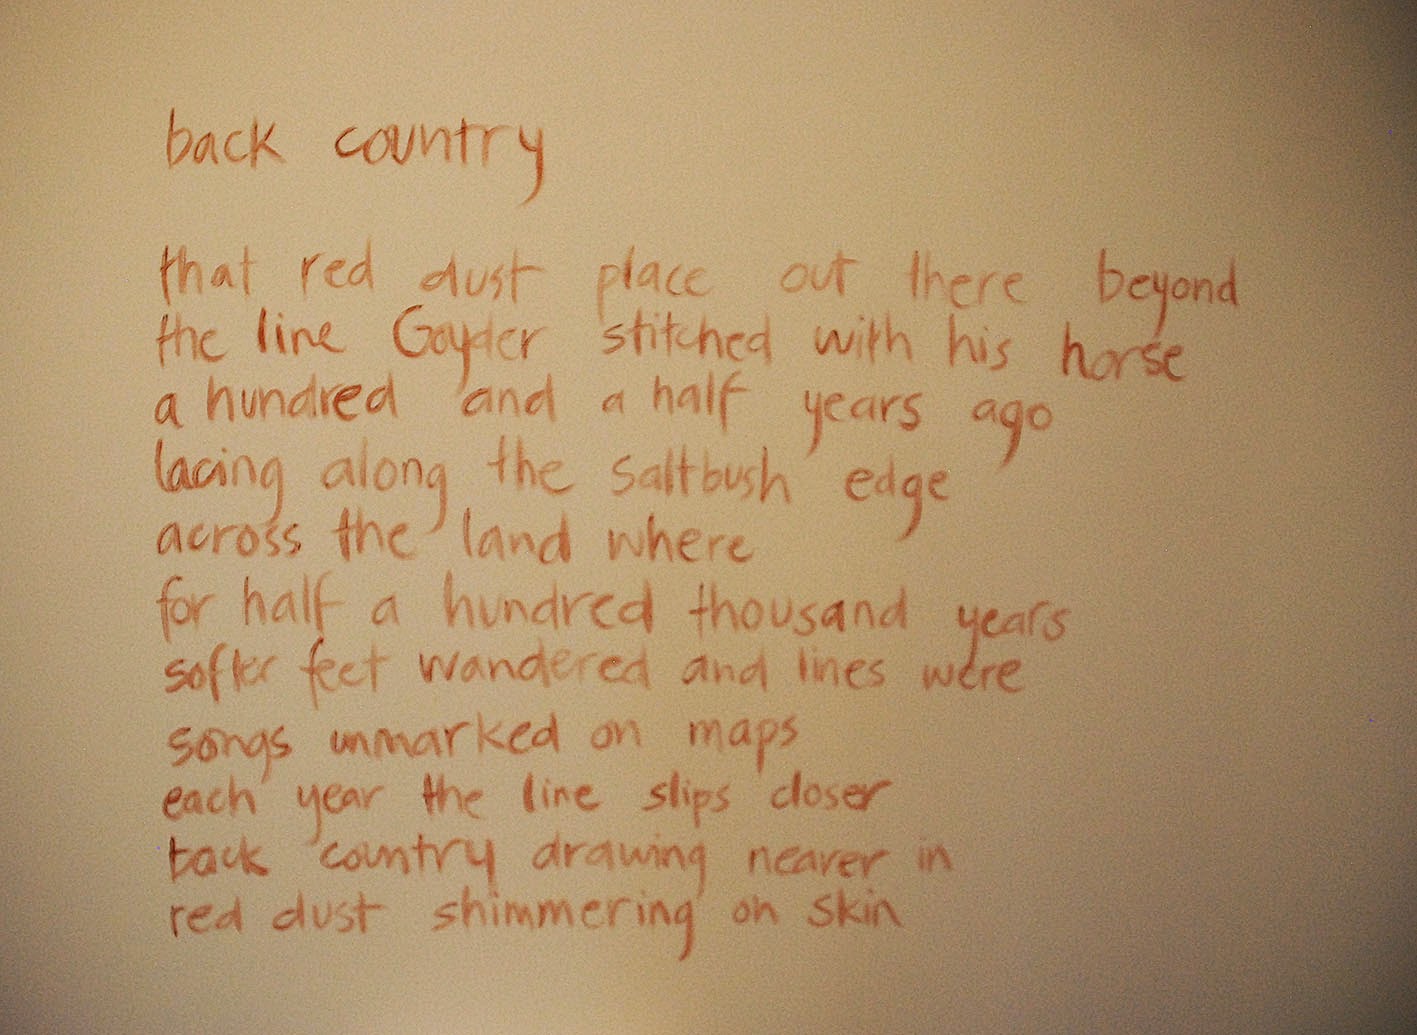 back country
that red dust place out there beyond
the line Goyder stitched with his horse
a hundred and a half years ago
lacing along the saltbush edge
across the land where
for half a hundred thousand years
softer feet wandered and lines were
songs unmarked on maps
each year the line slips closer
back country drawing nearer in
red dust shimmering on skin